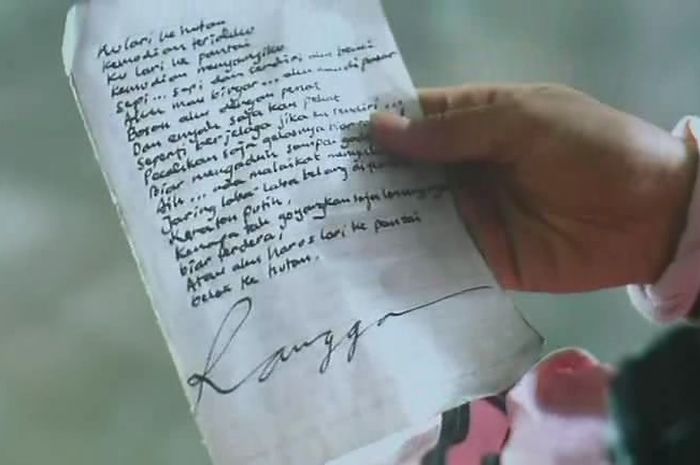 Ku lari ke hutan
kemudian teriakku
Ku lari ke pantai
kemudian menyanyiku
Sepi... sepi dan sendiri aku benci
Aku mau bingar... aku mau di pasar
Bosan aku dengan penat
Dan enyah saja kau pekat
Seperti berjelaga jika ku sendiri ...
Pecahkan saja gelasnya
Biar mengaduh sampai
Aih... ada malaikat
Jaring laba-laba belang di
Keraton putih,
Kenapa tak goyangkan saja loncengnya
biar terdera,
Atau aku harus lari ke pantai
belok ke hutan.
Rangga